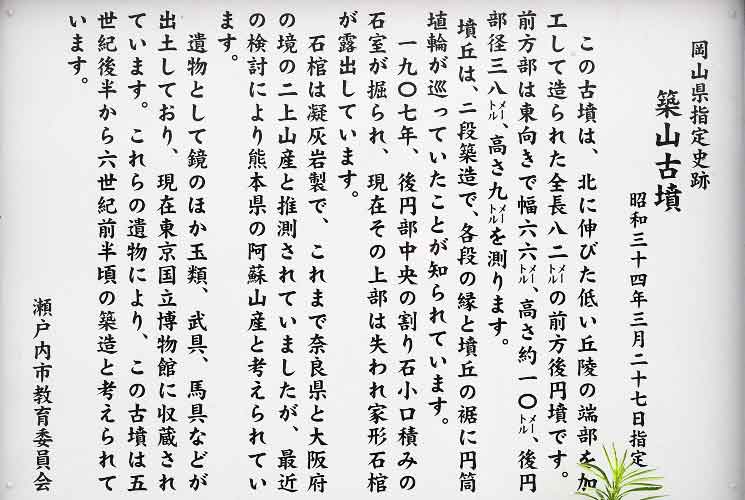 岡山県指定史跡
築山古墳
昭和三十四年三月二十七日指定
この古墳は、北に伸びた低い丘陵の端部を加
工して造られた全長八二メートルの前方後円墳です。
前方部は東向きで幅六六メートル、高さ約一〇メートル、後円
部径三八メートル、高さ九メートルを測ります。
墳丘は、二段築造で、各段の縁と墳丘の裾に円筒
埴輪が巡っていたことが知られています。
一九〇七年、後円部中央の割り石小口積みの
石室が掘られ、現在その上部は失われ家形石棺
が露出しています。
石棺は凝灰岩製で、これまで奈良県と大阪府
の境の二上山産と推測されていましたが、最近
の検討により熊本県の阿蘇山産と考えられてい
ます。
遺物として鏡のほか玉類、武具、馬具などが
出土しており、現在東京国立博物館に収蔵され
ています。これらの遺物により、この古墳は五
世紀後半から六世紀前半頃の築造と考えられて
います。
瀬戸内市教育委員会